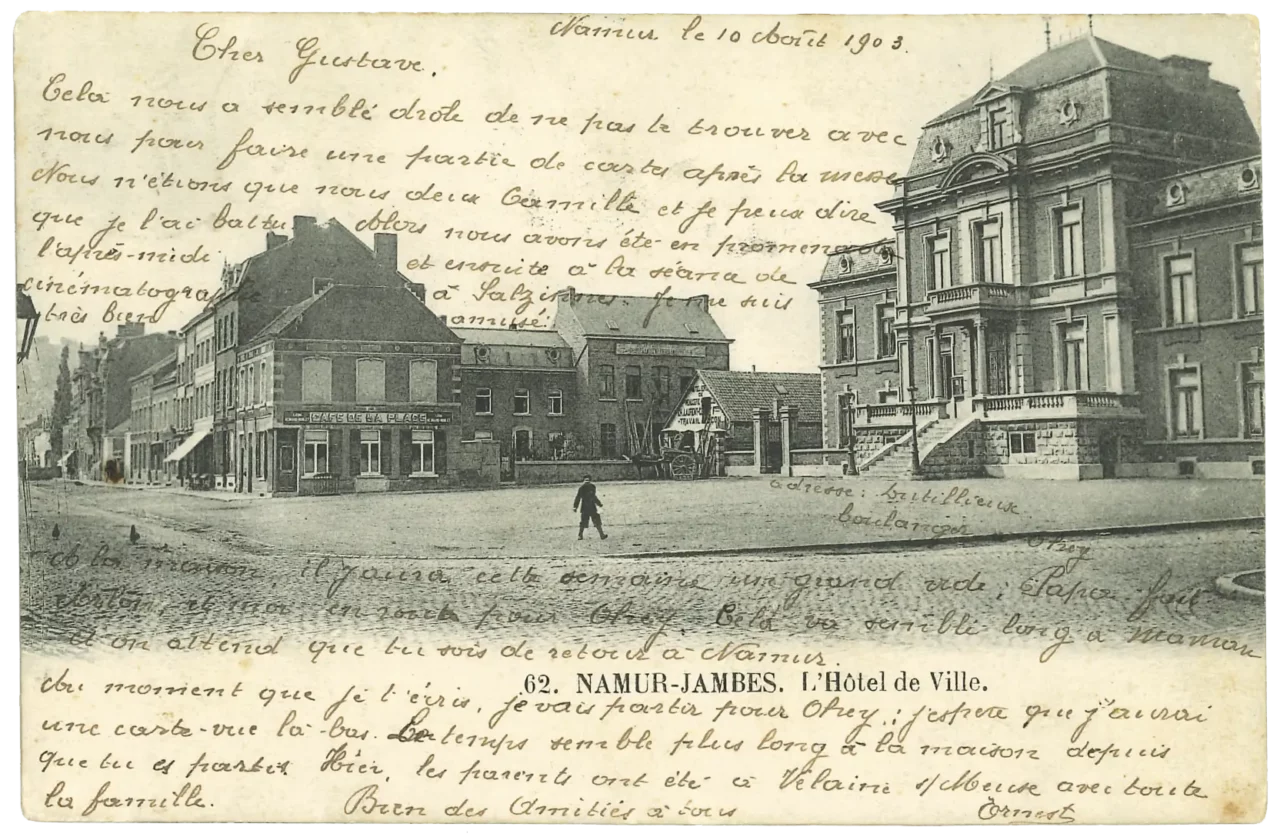 Namur le 10 Août 1903.
Cher Gustave.
Celà nous a semblé drôle de ne pas te trouver avec
nous pour faire une partie de cartes après la messe
Nous n'étions que nous deux Camille et je peux dire
que je l'ai battu. Alors nous avons été en promenade
l'après-midi et ensuite à la séance de
cinématographe à Salzinnes. Je me suis
très bien amusé.
CAFE DE LA PLACE
adresse: Dutillieux
boulanger
Ohey
A la maison, il y aura cette semaine un grand vide; Papa fait
et moi en route pour Ohey. Celà va semblé long à Maman
et on attend que tu sois de retour à Namur.
62. NAMUR-JAMBES. L'Hôtel de Ville.
Au moment que je t'écris, je vais partir pour Ohey; j'espère que j'aurai
une carte-vue là-bas. Le temps semble plus long à la maison depuis
que tu es partis. Hier, les parents ont été à Vélaine s/Meuse avec toute
la famille. Bien des Amitiés à tous
Ernest